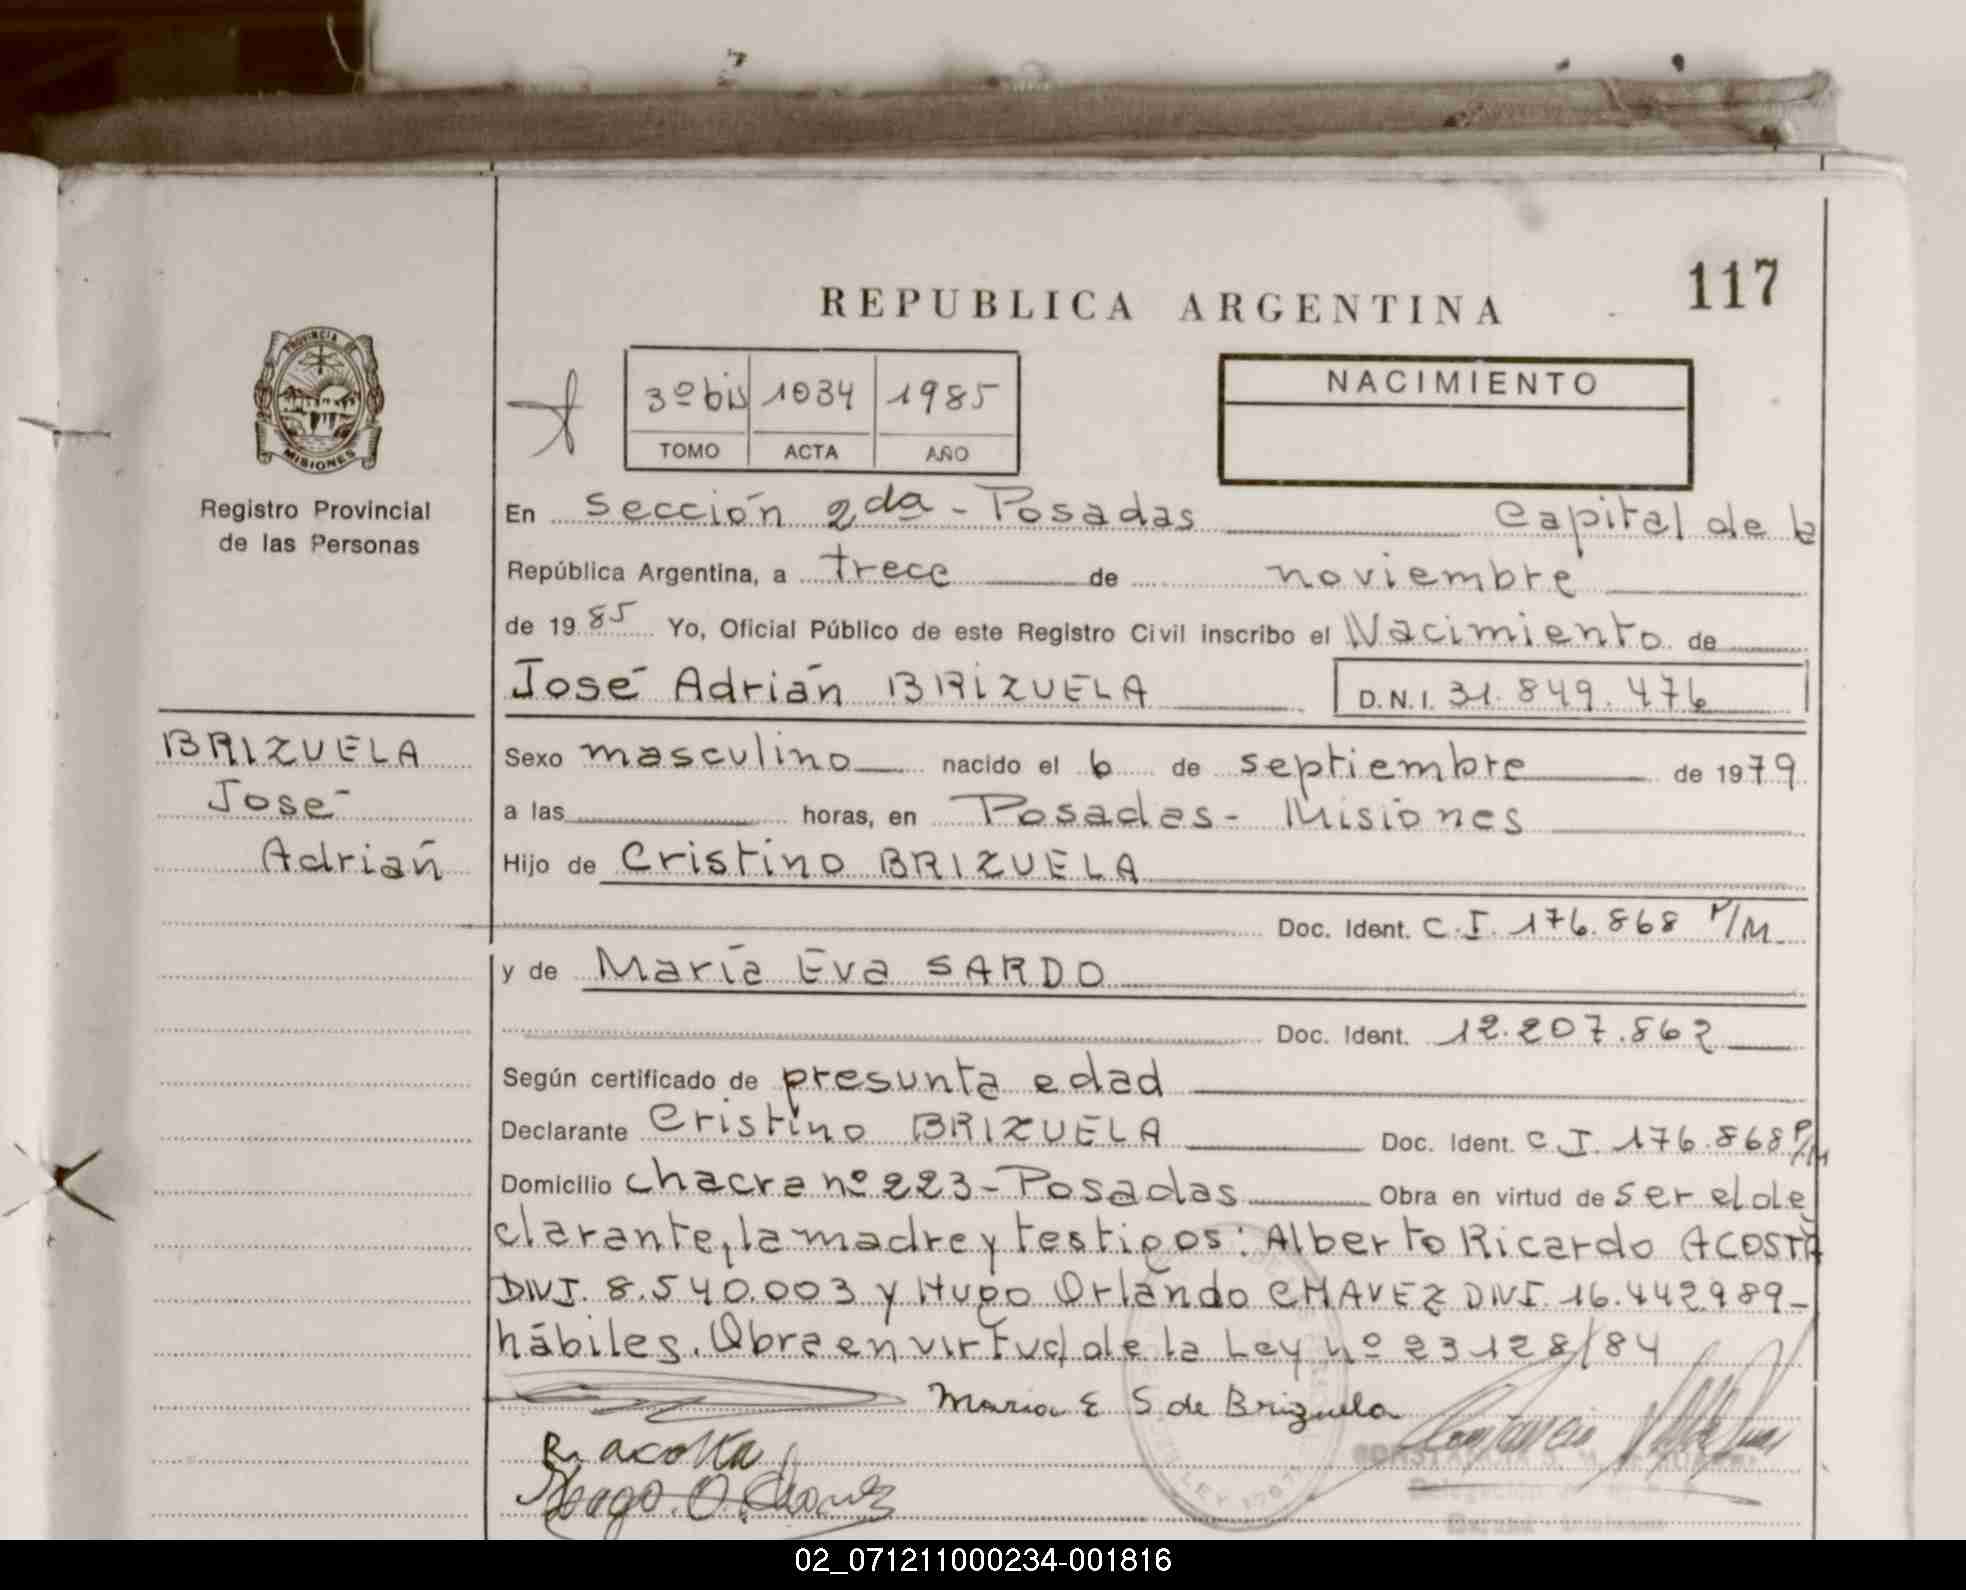 117
REPUBLICA ARGENTINA
PROVINCIA DE
MISIONES
Registro Provincial
de las Personas
3º bis 1034 1985
TOMO ACTA AÑO
NACIMIENTO
En sección 2da - Posadas Capital de la
República Argentina, a trece de noviembre
de 1985 Yo, Oficial Público de este Registro Civil inscribo el Nacimiento de
José Adrián BRIZUELA D.N.I. 31.849.476
BRIZUELA
José
Adrián
Sexo masculino nacido el 6 de septiembre de 1979
a las horas, en Posadas - Misiones
Hijo de Cristino BRIZUELA
Doc. Ident. C.I. 176.868 P/M
y de María Eva SARDO
Doc. Ident. 12.207.862
Según certificado de presunta edad
Declarante Cristino BRIZUELA Doc. Ident. C.I. 176.868 P/M
Domicilio chacra nº 223 - Posadas Obra en virtud de ser el de
clarante, la madre y testigos: Alberto Ricardo ACOSTA
DNI. 8.540.003 y Hugo Orlando CHAVEZ DNI. 16.442.989-
hábiles. Obra en virtud de la Ley nº 23128/84
Maria E S de Brizuela
R. acosta
Hugo. O. Chavez
02_071211000234-001816